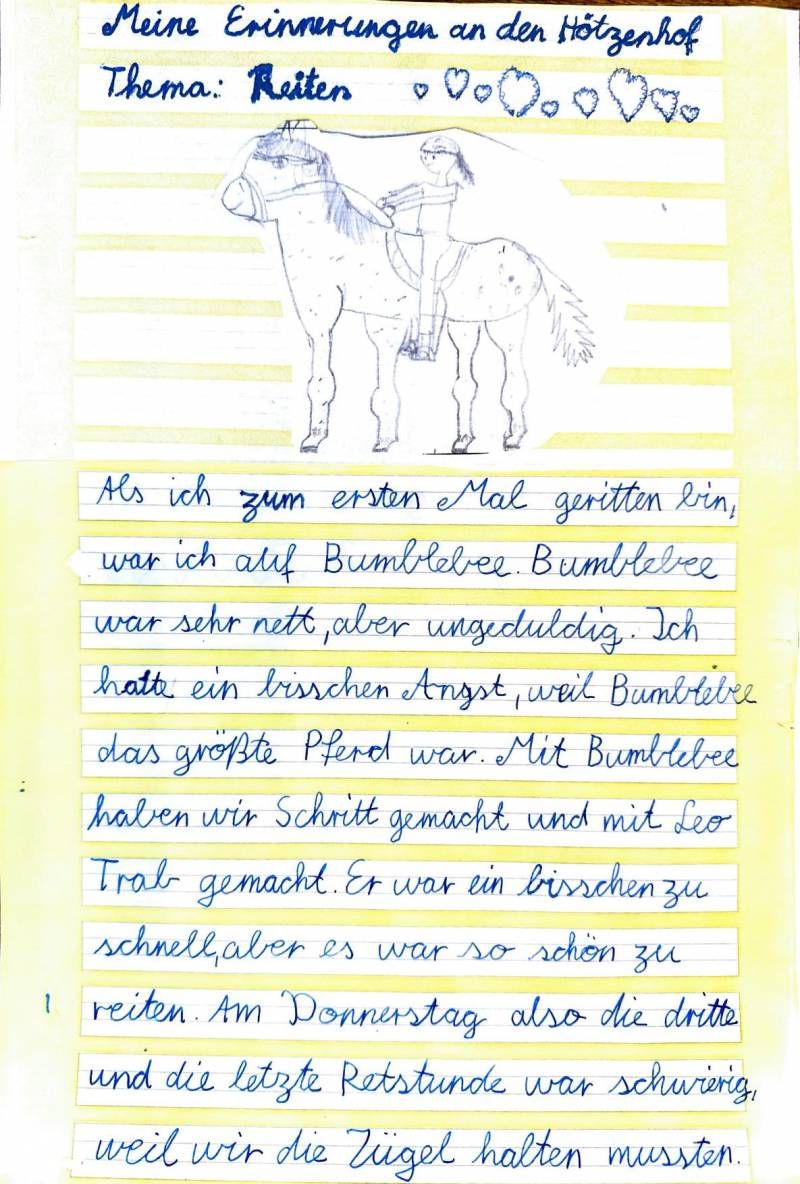 Meine Erinnerungen an den Hötzenhof
Thema: Reiten
Als ich zum ersten Mal geritten bin,
war ich auf Bumblebee. Bumblebee
war sehr nett, aber ungeduldig. Ich
hatte ein bisschen Angst, weil Bumblebee
das größte Pferd war. Mit Bumblebee
haben wir Schritt gemacht und mit Leo
Trab gemacht. Er war ein bisschen zu
schnell, aber es war so schön zu
reiten. Am Donnerstag also die dritte
und die letzte Retstunde war schwierig,
weil wir die Zügel halten mussten.